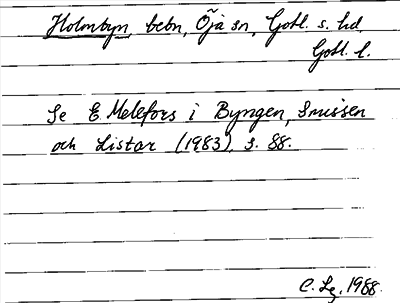 Holmbyn, bebn, Öja sn, Gotl. s. hd,
Gotl. l.
Se E. Melefors i Byngen, Smissen
och Listar (1983), s. 88.
C. Lg. 1988.